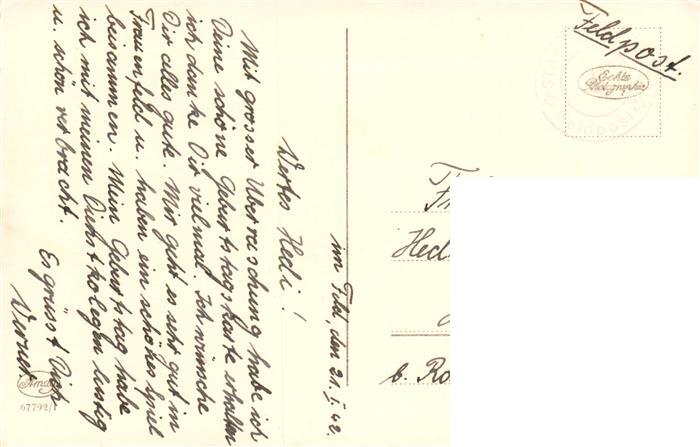 im Feld, den 21. I. 42.
Wertes Hedi!
Mit grosser Überraschung habe ich
Deine schöne Geburtstagskarte erhalten
ich danke Dir vielmal. Ich wünsche
Dir alles gute. Mir geht es sehr gut in
Frauenfeld u. haben ein schönes Spiel
beisammen. Mein Geburtstag habe
ich mit meinen Dienstkolegen lustig
u. schön verbracht.
Es grüsst Dich
Werner
67792/1
Feldpost.
Echte
Photographie
Feldpost
Hed
b. Ro